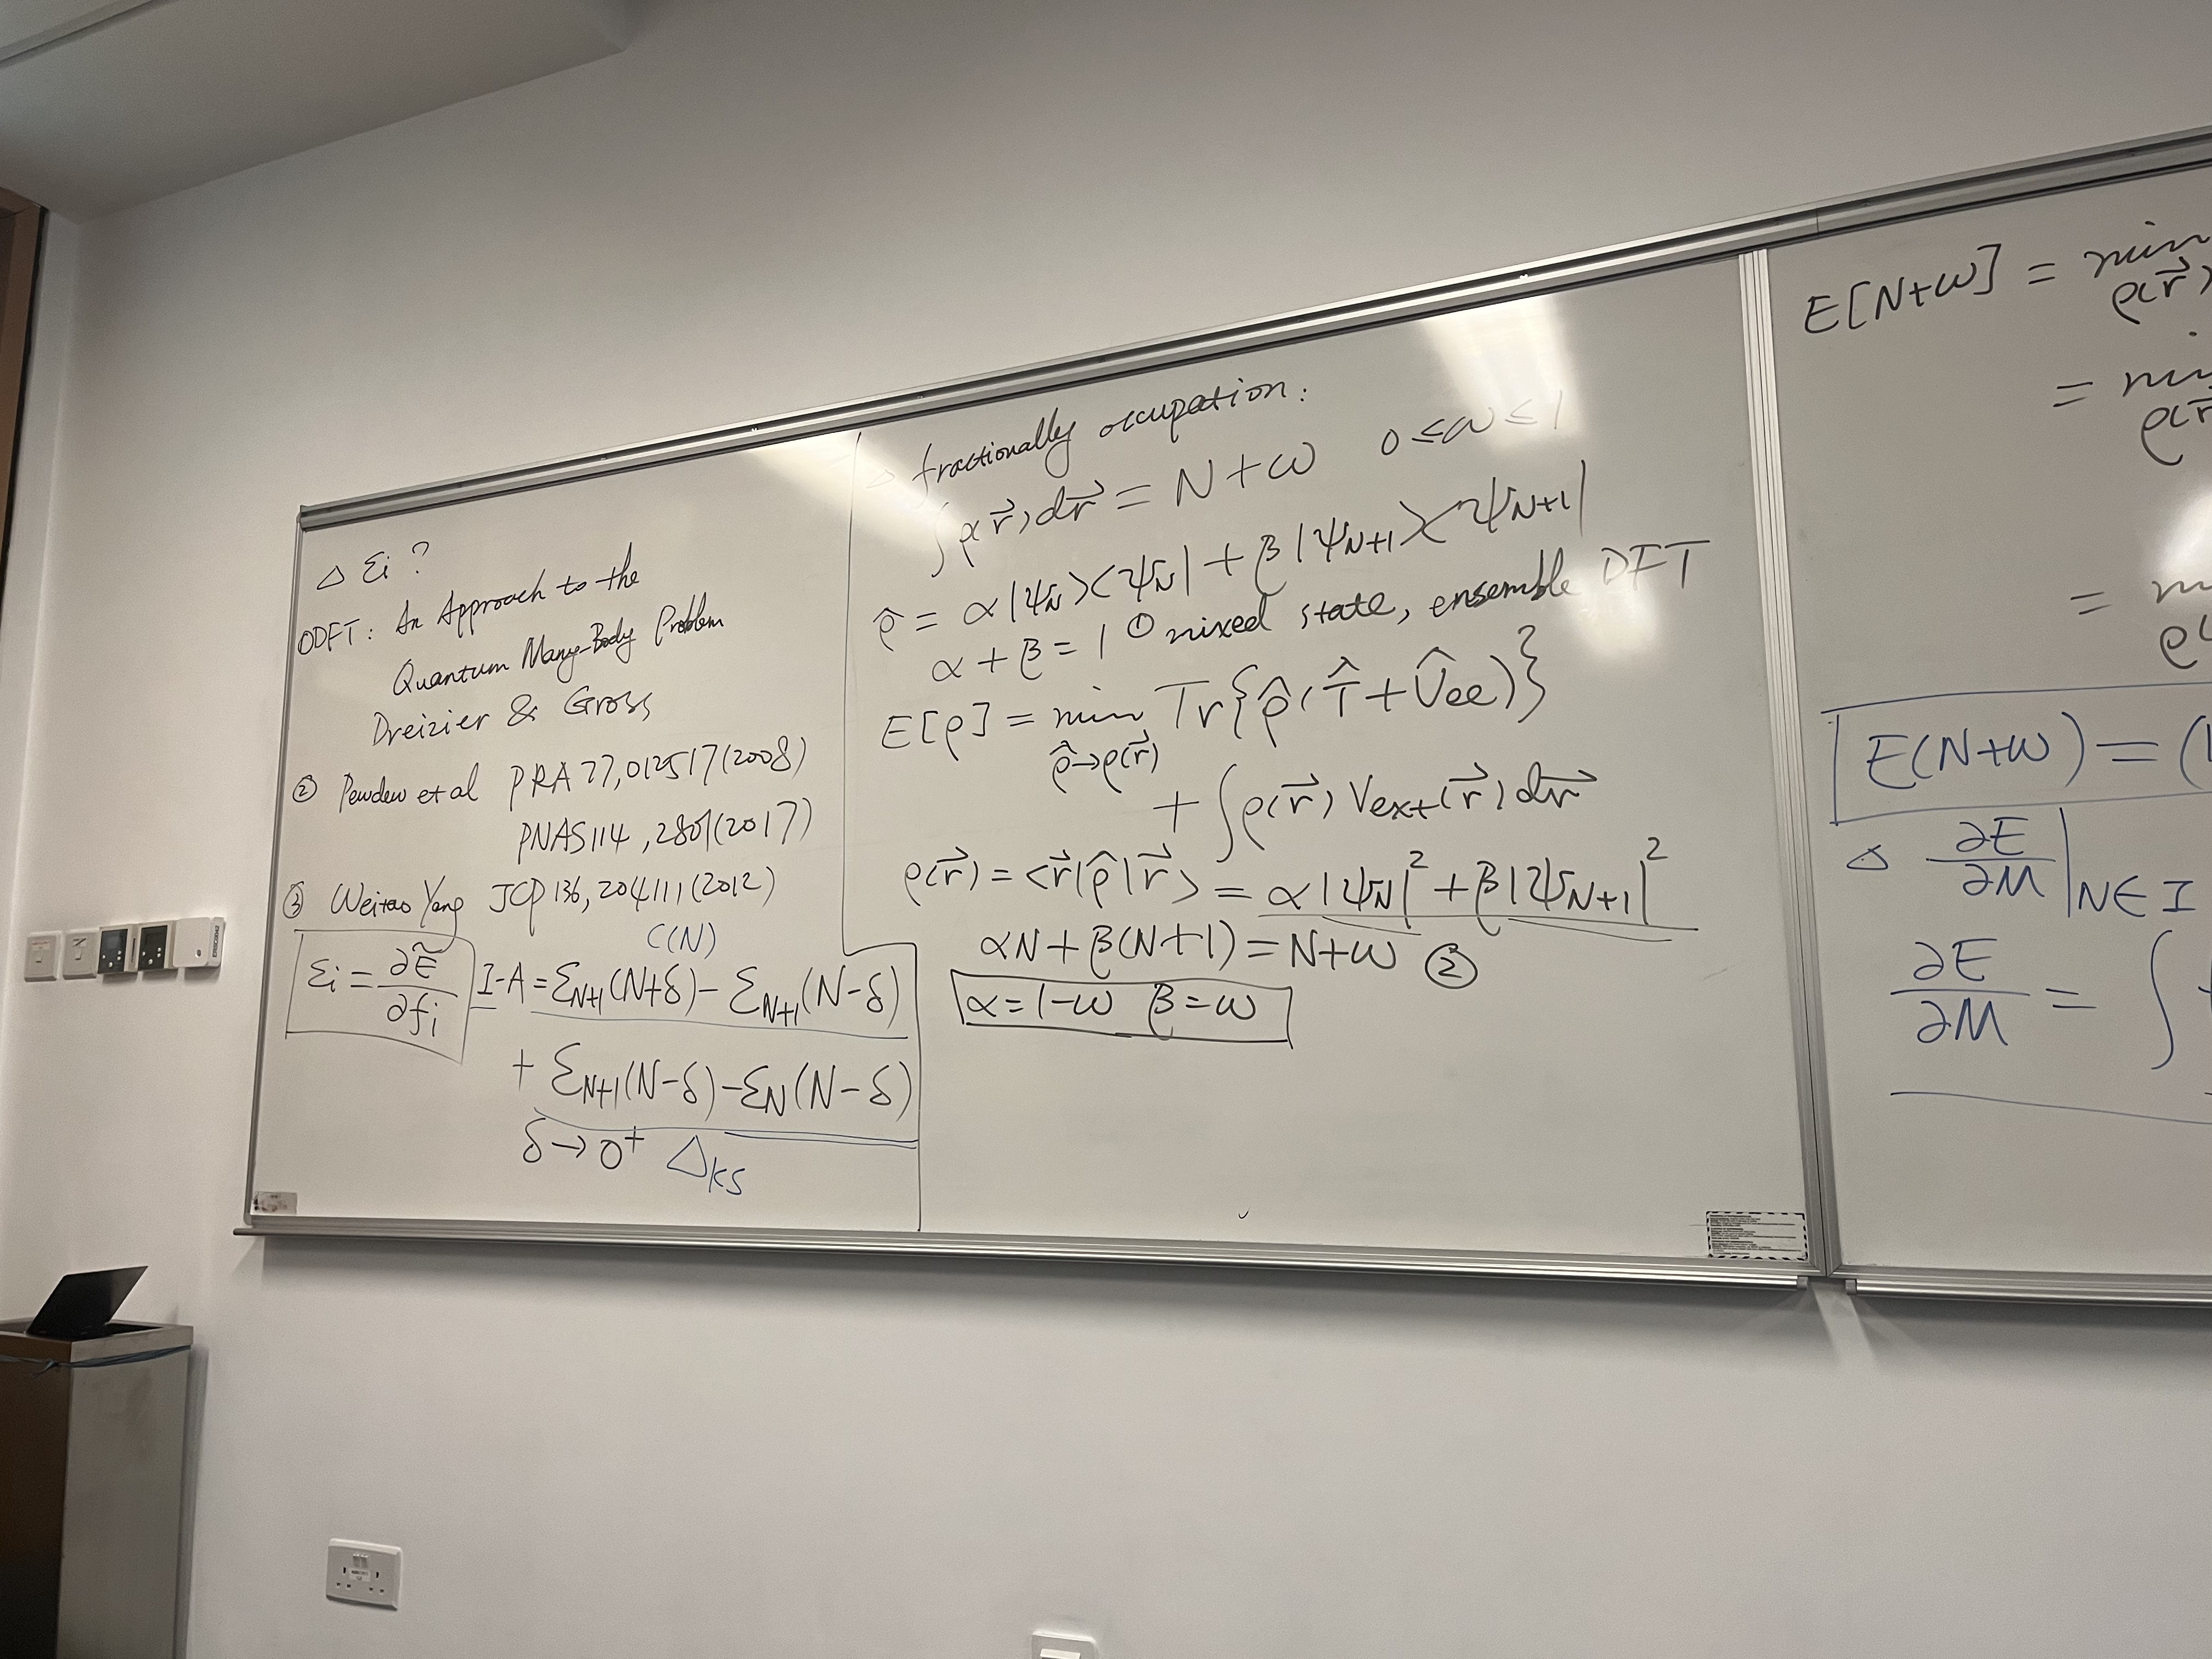 △ εi ?
①DFT: An Approach to the
Quantum Many-Body Problem
Dreizier & Gross
② Perdew et al PRA 77, 012517 (2008)
PNAS 114, 2801 (2017)
③ Weitao Yang JCP 136, 204111 (2012)
C(N)
εi = ∂Ẽ/∂fi
I-A = εN+1(N+δ) - εN+1(N-δ)
+ εN+1(N-δ) - εN(N-δ)
δ → 0⁺ △KS
△ fractionally occupation:
∫ρ(r⃗)dr⃗ = N+ω 0≤ω≤1
ρ̂ = α|ψN><ψN| + β|ψN+1><ψN+1|
α+β=1 ① mixed state, ensemble DFT
E[ρ] = min Tr{ρ̂(T̂+V̂ee)}
ρ̂→ρ(r⃗)
+ ∫ρ(r⃗)Vext(r⃗)dr⃗
ρ(r⃗) = <r⃗|ρ̂|r⃗> = α|ψN|² + β|ψN+1|²
αN + β(N+1) = N+ω ②
α=1-ω β=ω
E[N+ω] = min
ρ(r⃗)
= min
ρ(r⃗
=
ρ(
E(N+ω) = (1
△ ∂E/∂M |N∈I
∂E/∂M = ∫